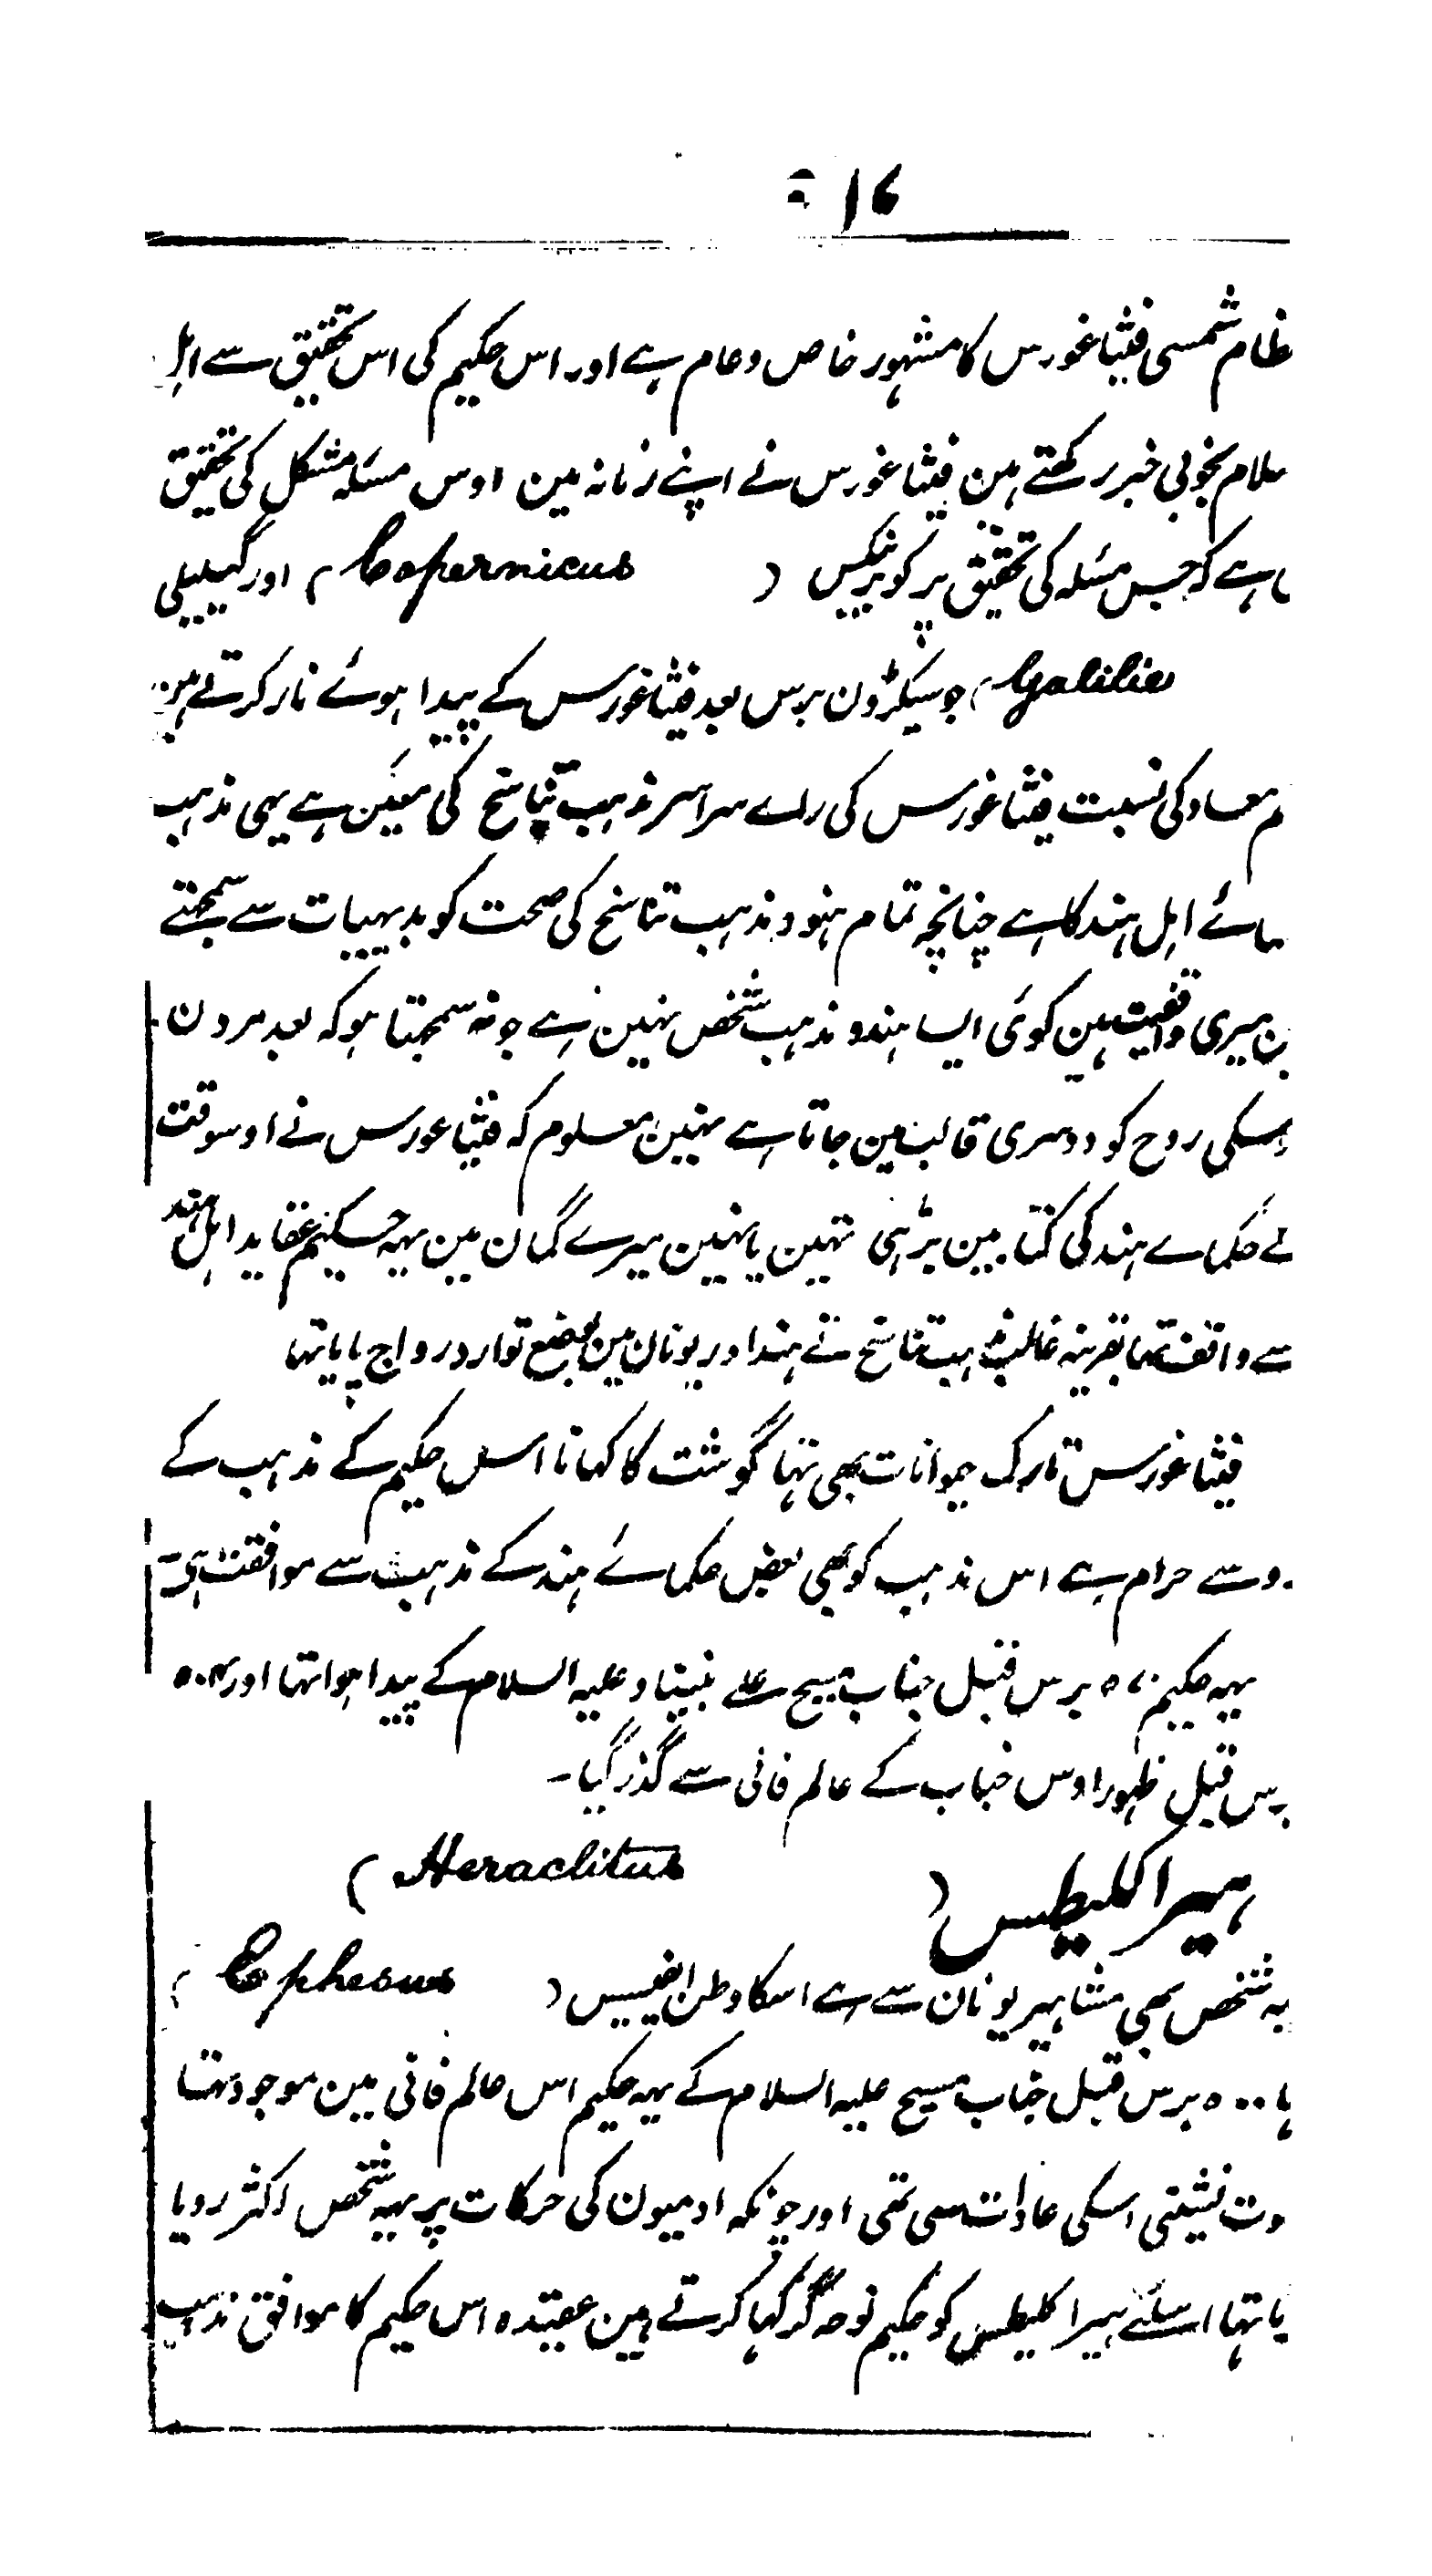 ۱۶
ظام شمسی فیثاغورس کا مشہور خاص و عام ہے اور اس حکیم کی اس تحقیق سے اہل
سلام بخوبی خبر رکھتے ہین فیثاغورس نے اپنے زمانہ مین اوس مسئلہ مشکل کی تحقیق
ہے کہ جس مسئلہ کی تحقیق پر کوپرنیکس ( Copernicus ) اور گیلیلی
Galilio ) جو سیکڑون برس بعد فیثاغورس کے پیدا ہوئے ناز کرتے ہین
م معاد کی نسبت فیثاغورس کی راے سراسر مذہب تناسخ کی معین ہے یہی مذہب
مائے اہل ہند کا ہے چنانچہ تمام ہنود مذہب تناسخ کی صحت کو بدیہیات سے سمجھتے
ن میری واقفیت مین کوئی ایسا ہندو مذہب شخص نہین ہے جو نہ سمجھتا ہو کہ بعد مردن
وسکی روح کو دوسری قالب مین جانا ہے نہین معلوم کہ فیثاغورس نے اوسوقت
نے حکماے ہند کی کتابین پڑہی تہین یا نہین میرے گمان مین یہہ حکیم عقاید اہل ہند
سے واقف تہا بقرینہ غالب مذہب تناسخ نے ہند اور یونان مین بوضع توارد رواج پایا تہا
فیثاغورس تارک حیوانات بھی تہا گوشت کا کہانا اس حکیم کے مذہب کے
روسے حرام ہے اس مذہب کو بھی بعض حکمائے ہند کے مذہب سے موافقت ہی ۔
یہہ حکیم ۵۷۰ برس قبل جناب مسیح علے نبینا و علیہ السلام کے پیدا ہوا تہا اور ۵۰۴
برس قبل ظہور اوس جناب کے عالم فانی سے گذر گیا ۔
ہیراکلیطس ( Heraclitus )
یہ شخص بھی مشاہیر یونان سے ہے اسکا وطن افیسس ( Ephesus )
ہا ۵۰۰ برس قبل جناب مسیح علیہ السلام کے یہہ حکیم اس عالم فانی مین موجود تہا
وت نشینی اسکی عادات سی تھی اور چونکہ ادمیون کی حرکات پر یہہ شخص اکثر رویا
یا تہا اسلئے ہیراکلیطس کو حکیم نوحہ گر کہا کرتے ہین عقیدہ اس حکیم کا موافق مذہب